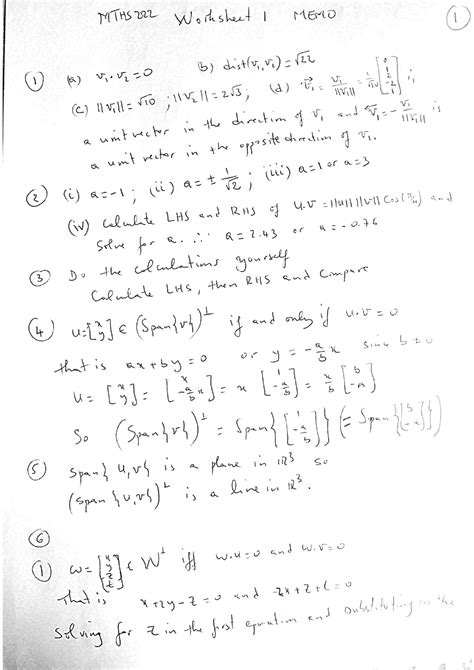 MTHS222 Worksheet 1 MEMO ①
① (a) v₁·v₂=0 b) dist(v₁,v₂)=√22
(c) ||v₁||=√10 ; ||v₂||=2√3; (d)
a unit vector in the direction of v₁ and
a unit vector in the opposite direction of v₁.
② (i) a=-1; (ii) a=± 1/√2; (iii) a=1 or a=3
(iv) Calculate LHS and RHS of u.v=||u|| ||v|| Cos(π/6) and
Solve for a. ∴ a=2.43 or a=-0.76
③ Do the calculations yourself
Calculate LHS, then RHS and Compare
④ u=[x y] ∈ (Span{v})^⊥ if and only if u·v=0
that is ax+by=0 or y = -a/b x since b≠0
u = [x y] = [x -a/b x] = x [1 -a/b] = x/b [b -a]
So (Span{v})^⊥ = Span{[1 -a/b]} (= Span{[b -a]})
⑤ Span{u,v} is a plane in ℝ³ so
(Span{u,v})^⊥ is a line in ℝ³.
⑥
① ∈ W^⊥ iff w.u=0 and w.v=0
That is x+2y-z=0 and
Solving for z in the first equation and substituting in the